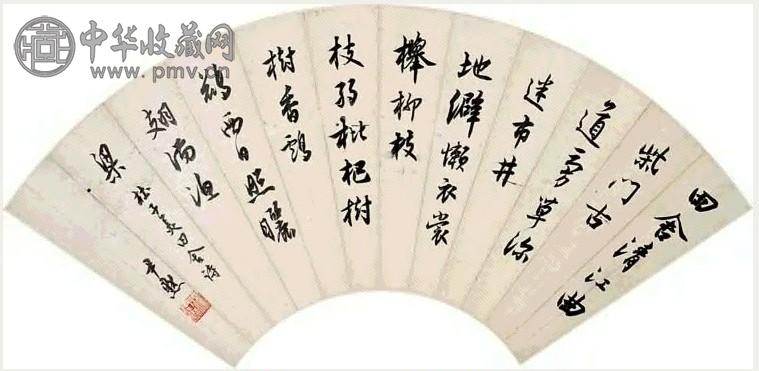 中华收藏网
www.pmv.cn
田舍清江曲
柴门古
道旁草深
迷市井
地僻懒衣裳
櫸柳枝
枝弱枇杷樹
樹香鸕
鷀西日照曬
翅滿漁
梁 杜子美田舍诗
尹默